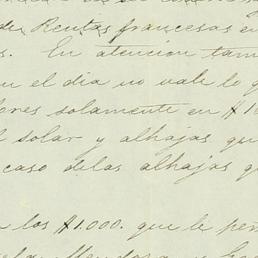 de Rentas francesas en
s. En atencion tam
n el dia no vale lo q
ores solamente en $1
l solar y alhajas qu
caso de las alhajas q
los $1.000. que le pe